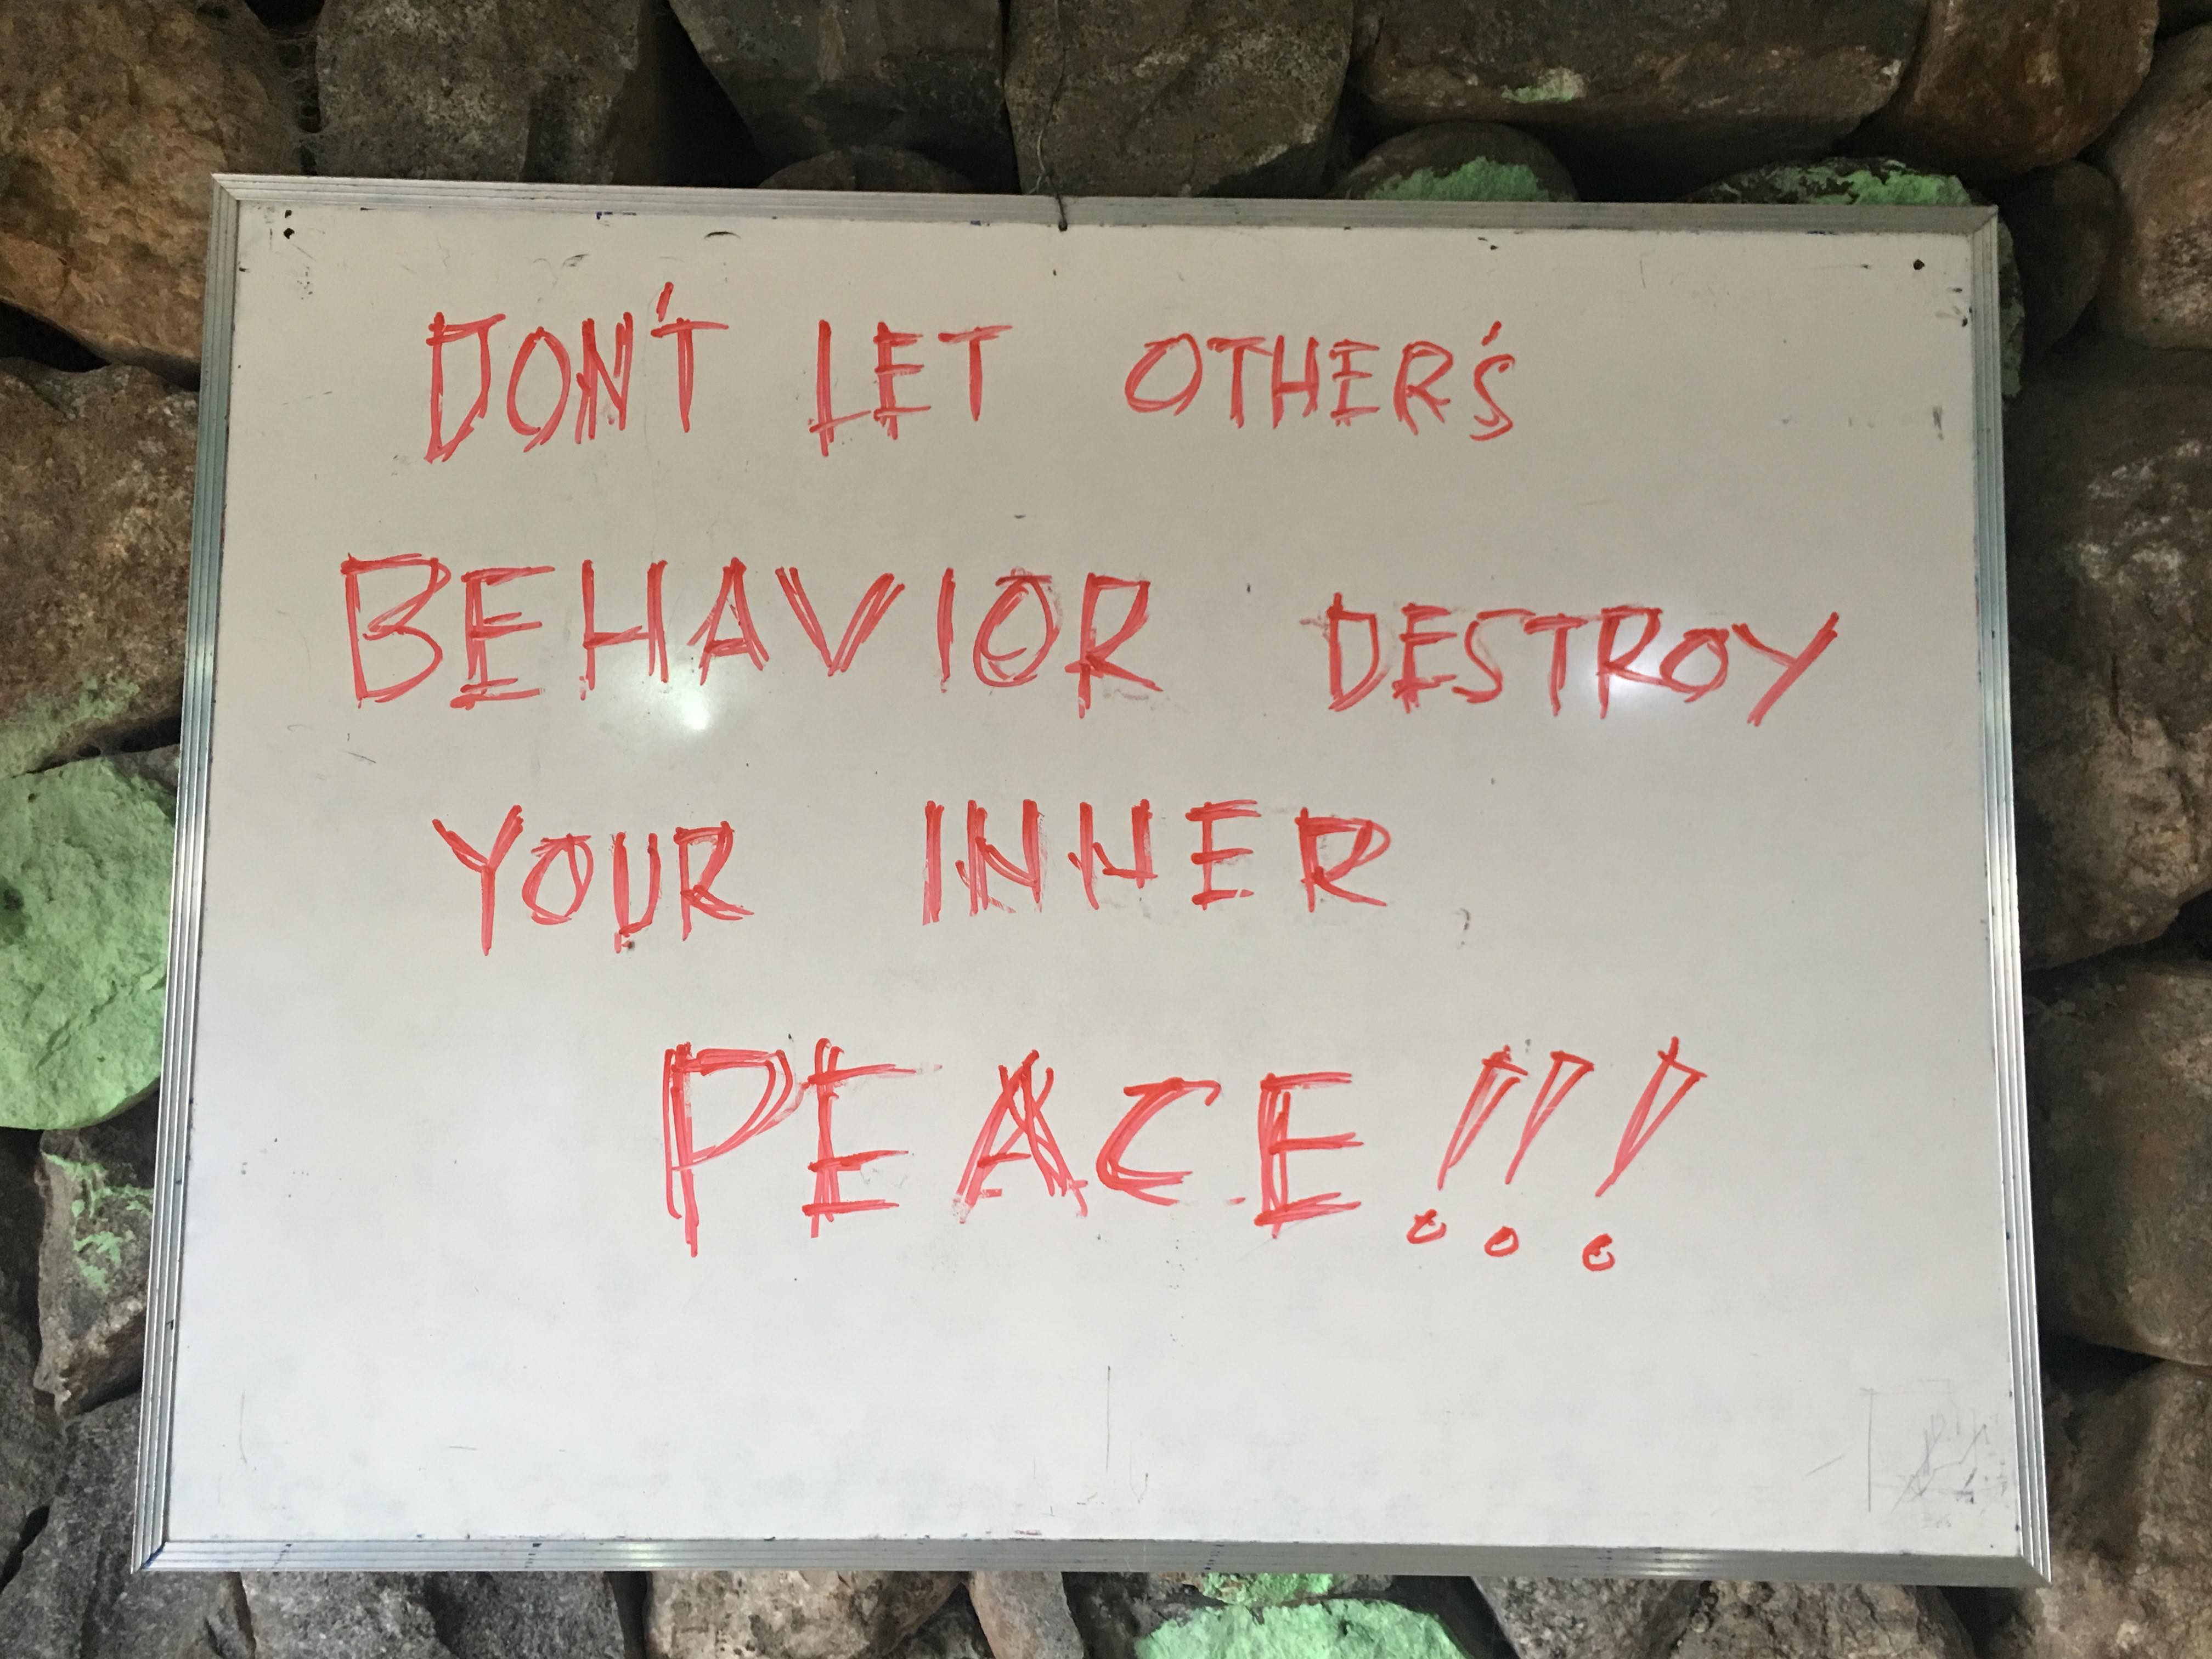 DON'T LET OTHER'S
BEHAVIOR DESTROY
YOUR INNER
PEACE!!!